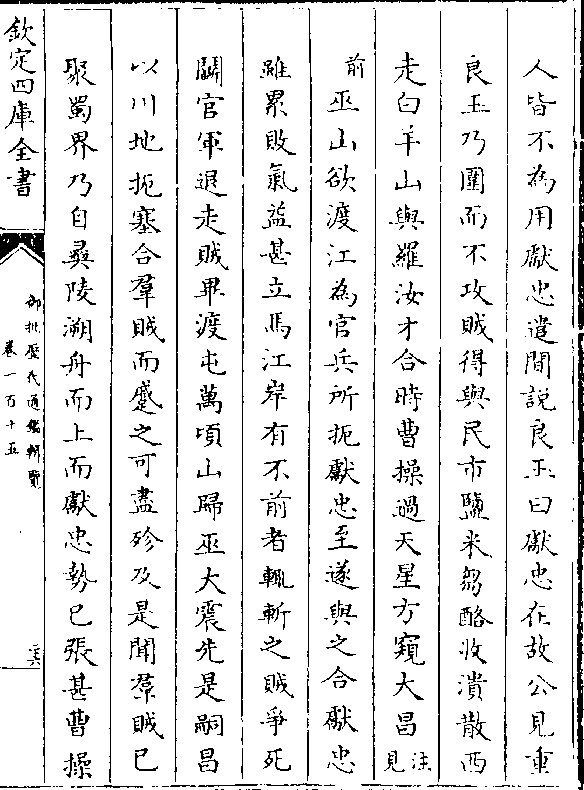 人皆不為用獻忠遣間說良玉曰獻忠在故公見重
良玉乃圍而不攻賊得與民市鹽米芻酪收潰散西
走白羊山與羅汝才合時曹操過天星方窺大昌注見
前巫山欲渡江為官兵所扼獻忠至遂與之合獻忠
雖累敗氣益甚立馬江岸有不前者輒斬之賊爭死
鬭官軍退走賊畢渡屯萬頃山歸巫大震先是嗣昌
以川地扼塞合羣賊而蹙之可盡殄及是聞羣賊已
聚蜀界乃自彝陵溯舟而上而獻忠勢已張甚曹操
欽定四庫全書
御批歴代通鑑輯覽
卷一百十五